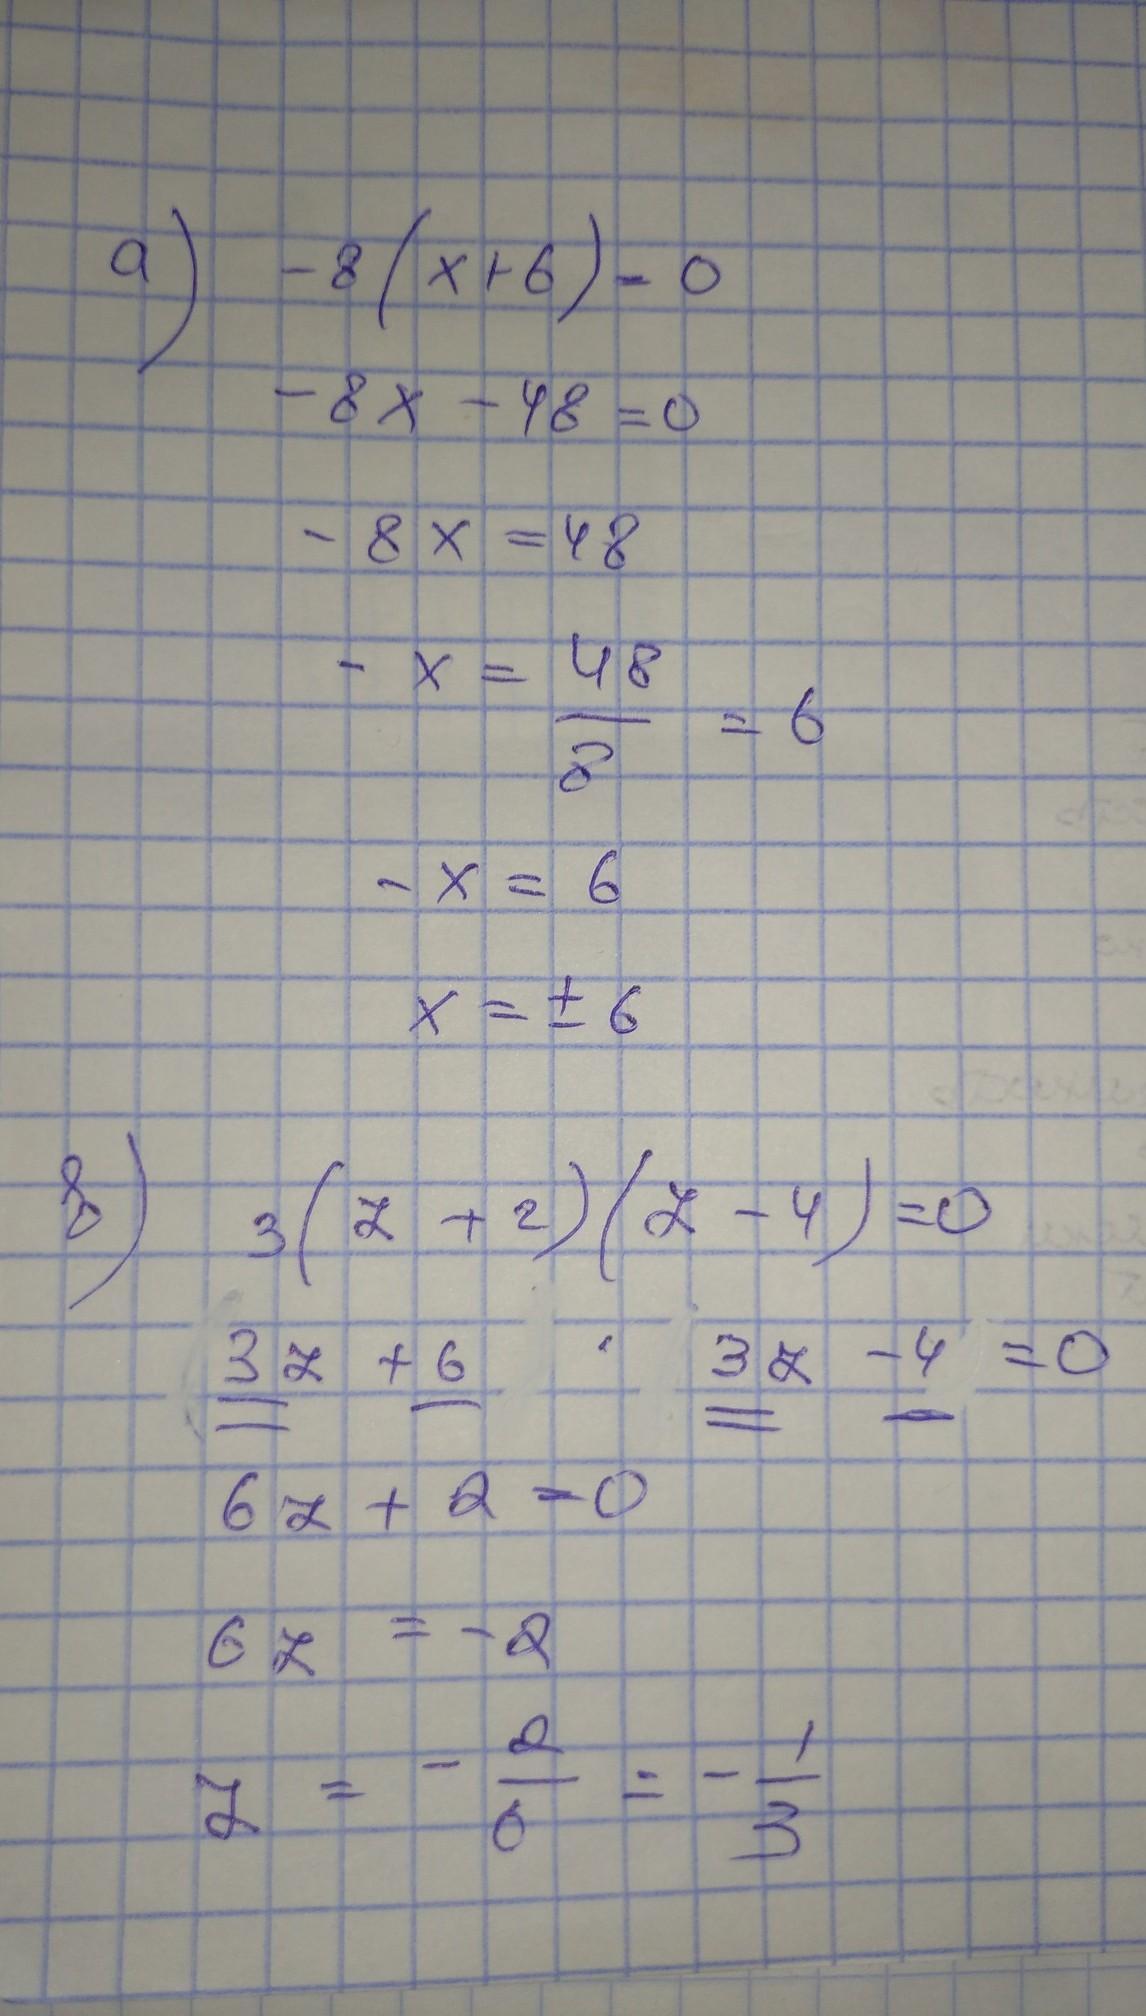 a) -8(x+6)=0
-8x -48=0
-8x=48
-x=48/8=6
-x=6
x=±6
в) 3(z+2)(z-4)=0
3z+6 · 3z-4=0
6z+2=0
6z=-2
z=-2/6=-1/3